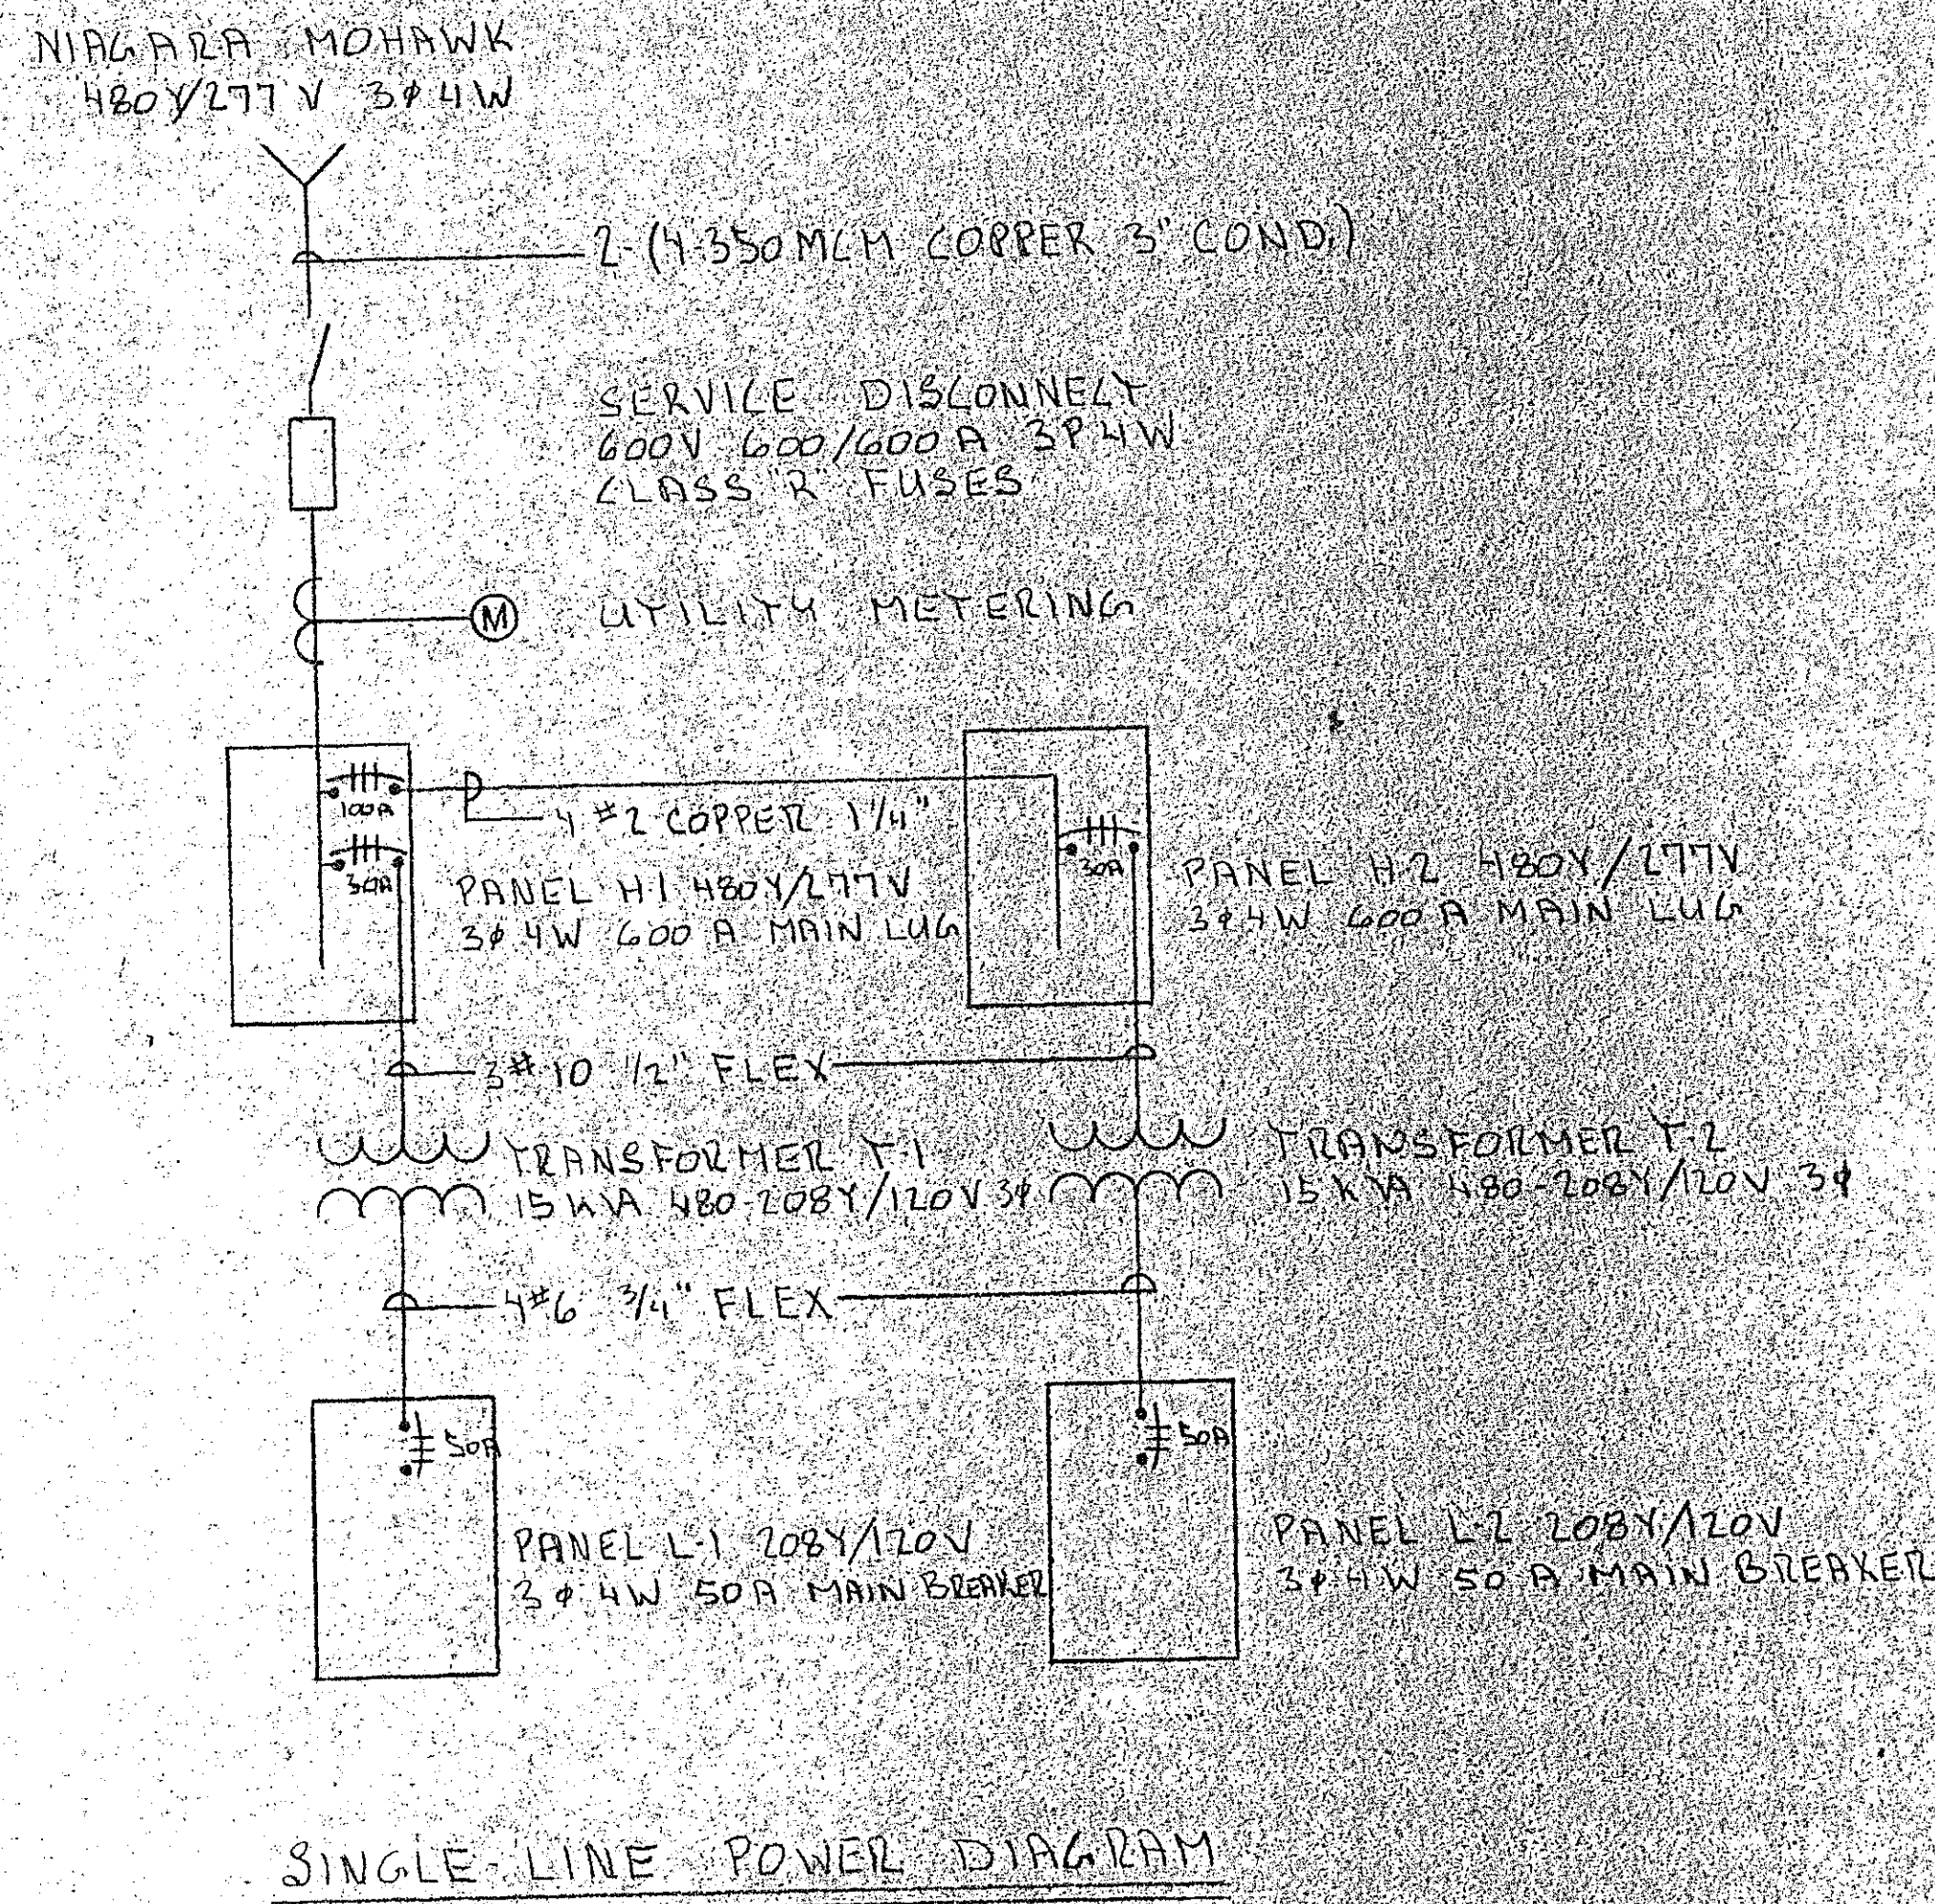 NIAGARA MOHAWK
480Y/277 V 3φ 4W
2-(4-350 MCM COPPER 3" COND.)
SERVICE DISCONNECT
600V 600/600 A 3P 4W
CLASS "R" FUSES
M UTILITY METERING
100A
4 #2 COPPER 1 1/4"
30A
30A
PANEL H-1 480Y/277V
3φ 4W 600 A MAIN LUG
PANEL H-2 480Y/277V
3φ 4W 600 A MAIN LUG
3#10 1/2" FLEX
TRANSFORMER T-1
15 KVA 480-208Y/120V 3φ
TRANSFORMER T-2
15 KVA 480-208Y/120V 3φ
4#6 3/4" FLEX
50A
50A
PANEL L-1 208Y/120V
3φ 4W 50A MAIN BREAKER
PANEL L-2 208Y/120V
3φ 4W 50 A MAIN BREAKER
SINGLE-LINE POWER DIAGRAM